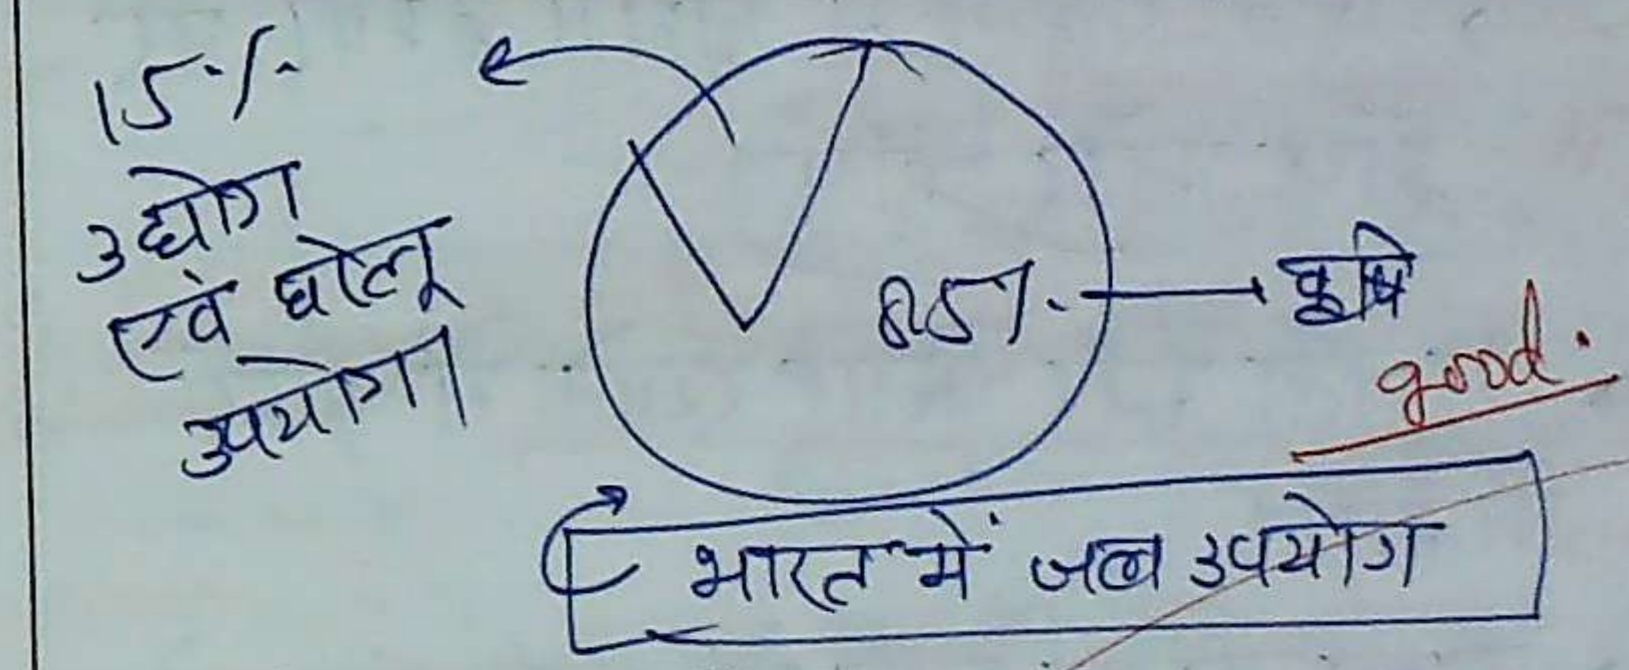 15%
उद्योग
एवं घरेलू
उपयोग।
85%
कृषि
good.
भारत में जल उपयोग